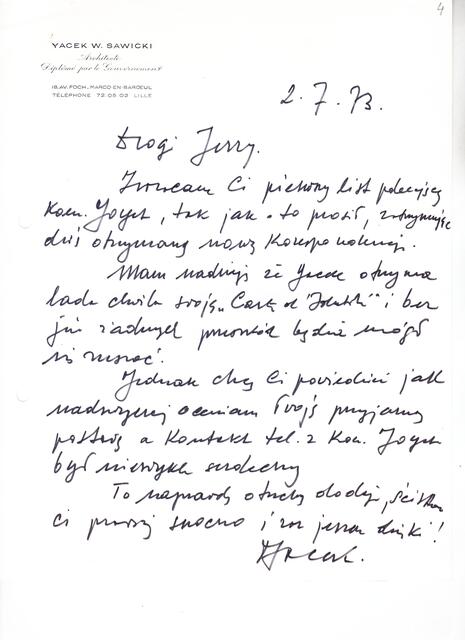 4
YACEK W. SAWICKI
Architecte
Diplômé par le Gouvernement
18, AV. FOCH, MARCQ-EN-BAROEUL
TÉLÉPHONE 72.05.02 LILLE
2.7.73.
Drogi Jerzy.
Zwracam Ci pierwszy list polecający
Kom. , tak jak o to prosił, zatrzymując
dziś otrzymaną nową korespondencję.
Mam nadzieję że Jacek otrzyma
lada chwila swoją "Carte d'Identité" i bez
już żadnych przeszkód będzie mógł
się
Jednak chcę Ci powiedzieć jak
nadzwyczaj oceniam Twoją przyjazną
postawę a kontakt tel. z Kom.
był niezwykle serdeczny
To naprawdę otuchy dodaje, ściskam
Ci prawicę mocno i raz jeszcze dzięki!